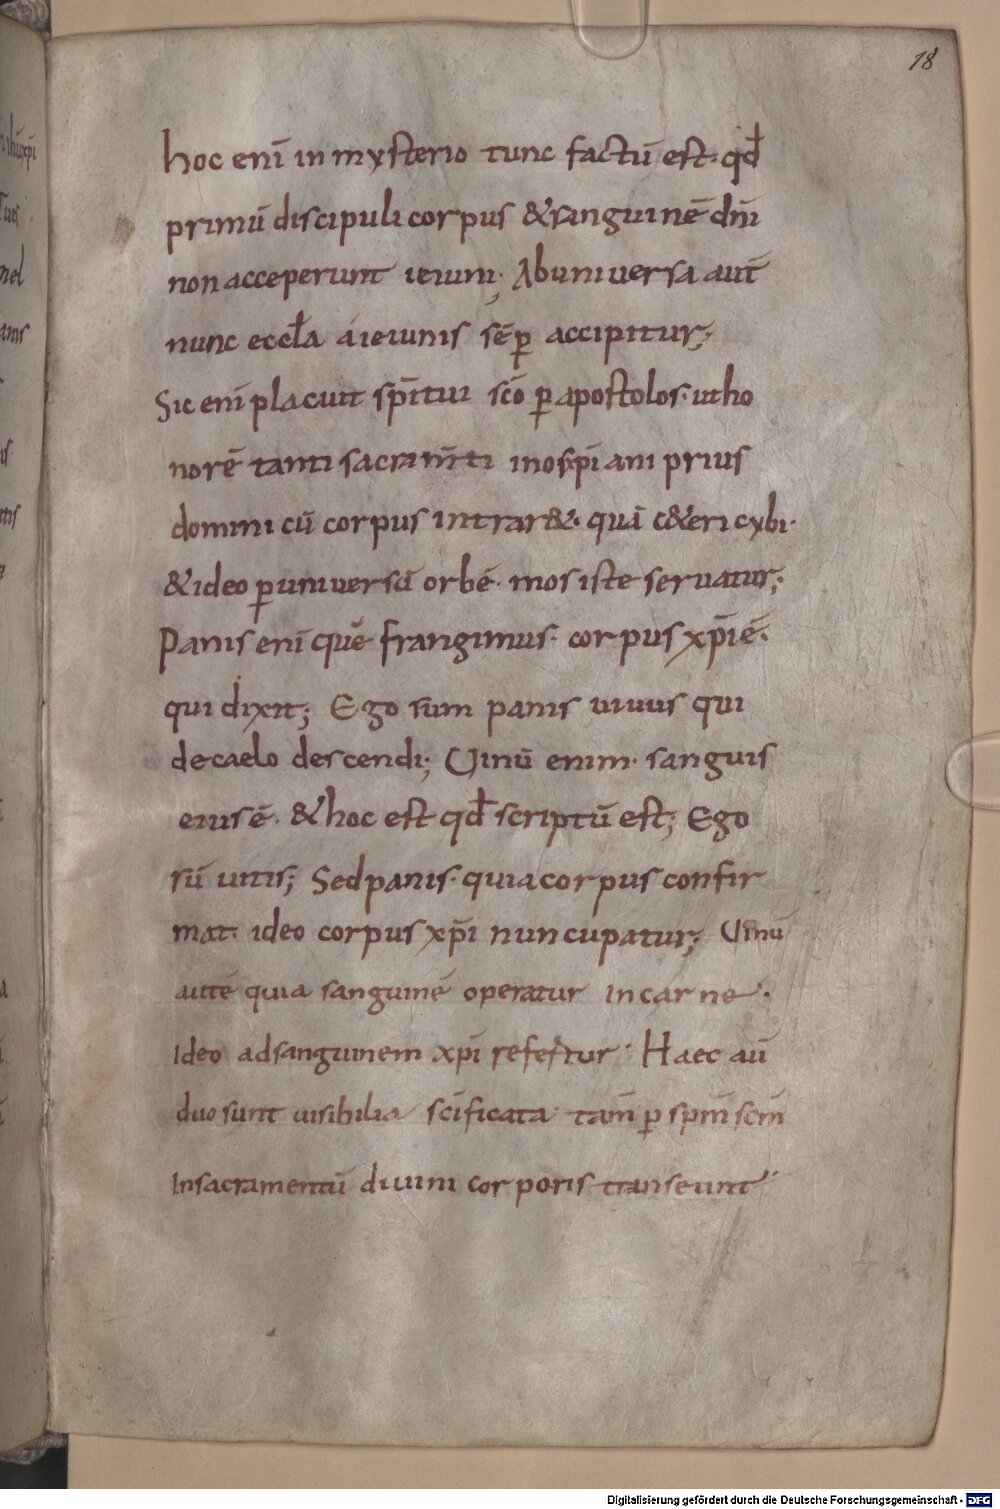 18
hoc enī in mysterio tunc factū est· qđ
primū discipuli corpus & sanguinē dn̄i
non acceperunt ieiuni; Ab uniuersa aut̄
nunc eccła a ieiunis sēꝑ accipitur;
Sic enī placuit sp̄itui sc̄o ꝑ apostolos· ut ho
norē tanti sacram̄ti in os xp̄iani prius
dominicū corpus intrar&· quā c&eri cybi·
& ideo ꝑ uniuersū orbē· mos iste seruatur;
Panis enī quē frangimus· corpus xp̄i ē·
qui dixit; Ego sum panis uiuus qui
de caelo descendi; Uinū enim· sanguis
eius ē· & hoc est qđ scriptū est; Ego
sū uitis; Sed panis· quia corpus confir
mat· ideo corpus xp̄i nuncupatur; Uinū
autē quia sanguinē operatur in carne·
Ideo ad sanguinem xp̄i refertur· Haec aū
duo sunt uisibilia sc̄ificata· tam̄ ꝑ sp̄m sc̄m
In sacramentū diuini corporis transeunt·
Digitalisierung gefördert durch die Deutsche Forschungsgemeinschaft - DFG